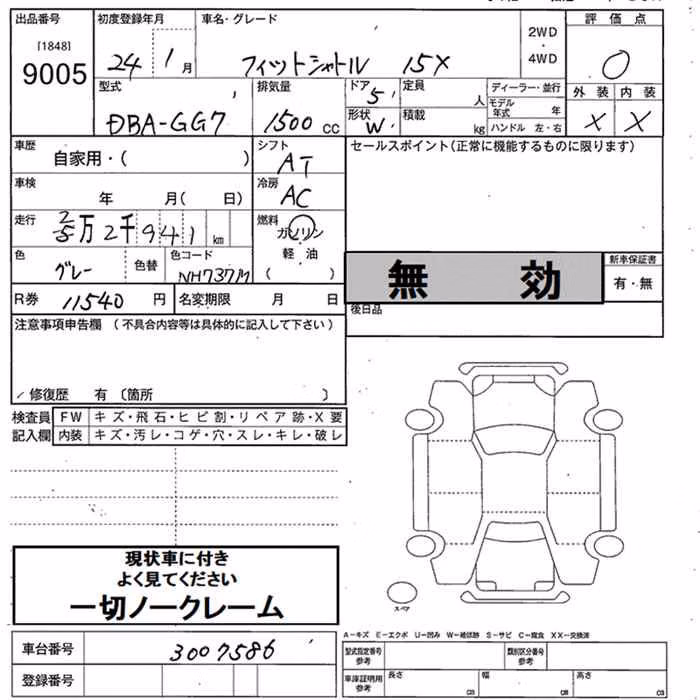 出品番号 初度登録年月 車名・グレード 2WD ・ 4WD 評価点
[1848]
9005 24 1月 フィットシャトル 15X ○
型式 排気量 ドア 定員 ディーラー・並行 外装 内装
DBA-GG7 1500cc 5 人 モデル年式 年 X X
形状 積載 ハンドル 左・右
W kg
車歴 シフト セールスポイント(正常に機能するものに限ります)
自家用・( ) AT
車検 冷房
年 月( 日) AC
走行 燃料
万 2千941km ガソリン
軽油
( )
色 色替 色コード 新車保証書
グレー NH737M 無効 有・無
R券 11540円 名変期限 月 日 後日品
注意事項申告欄 (不具合内容等は具体的に記入して下さい)
修復歴 有〔箇所 〕
検査員 FW キズ・飛石・ヒビ割・リペア跡・X要
記入欄 内装 キズ・汚レ・コゲ・穴・スレ・キレ・破レ
現状車に付き
よく見てください
一切ノークレーム
スペア
A-キズ E-エクボ U-凹み W-補修跡 S-サビ C-腐食 XX-交換済
車台番号 3007586 型式指定番号 参考 類別区分番号 参考
登録番号 車庫証明用 参考 長さ cm 幅 cm 高さ cm